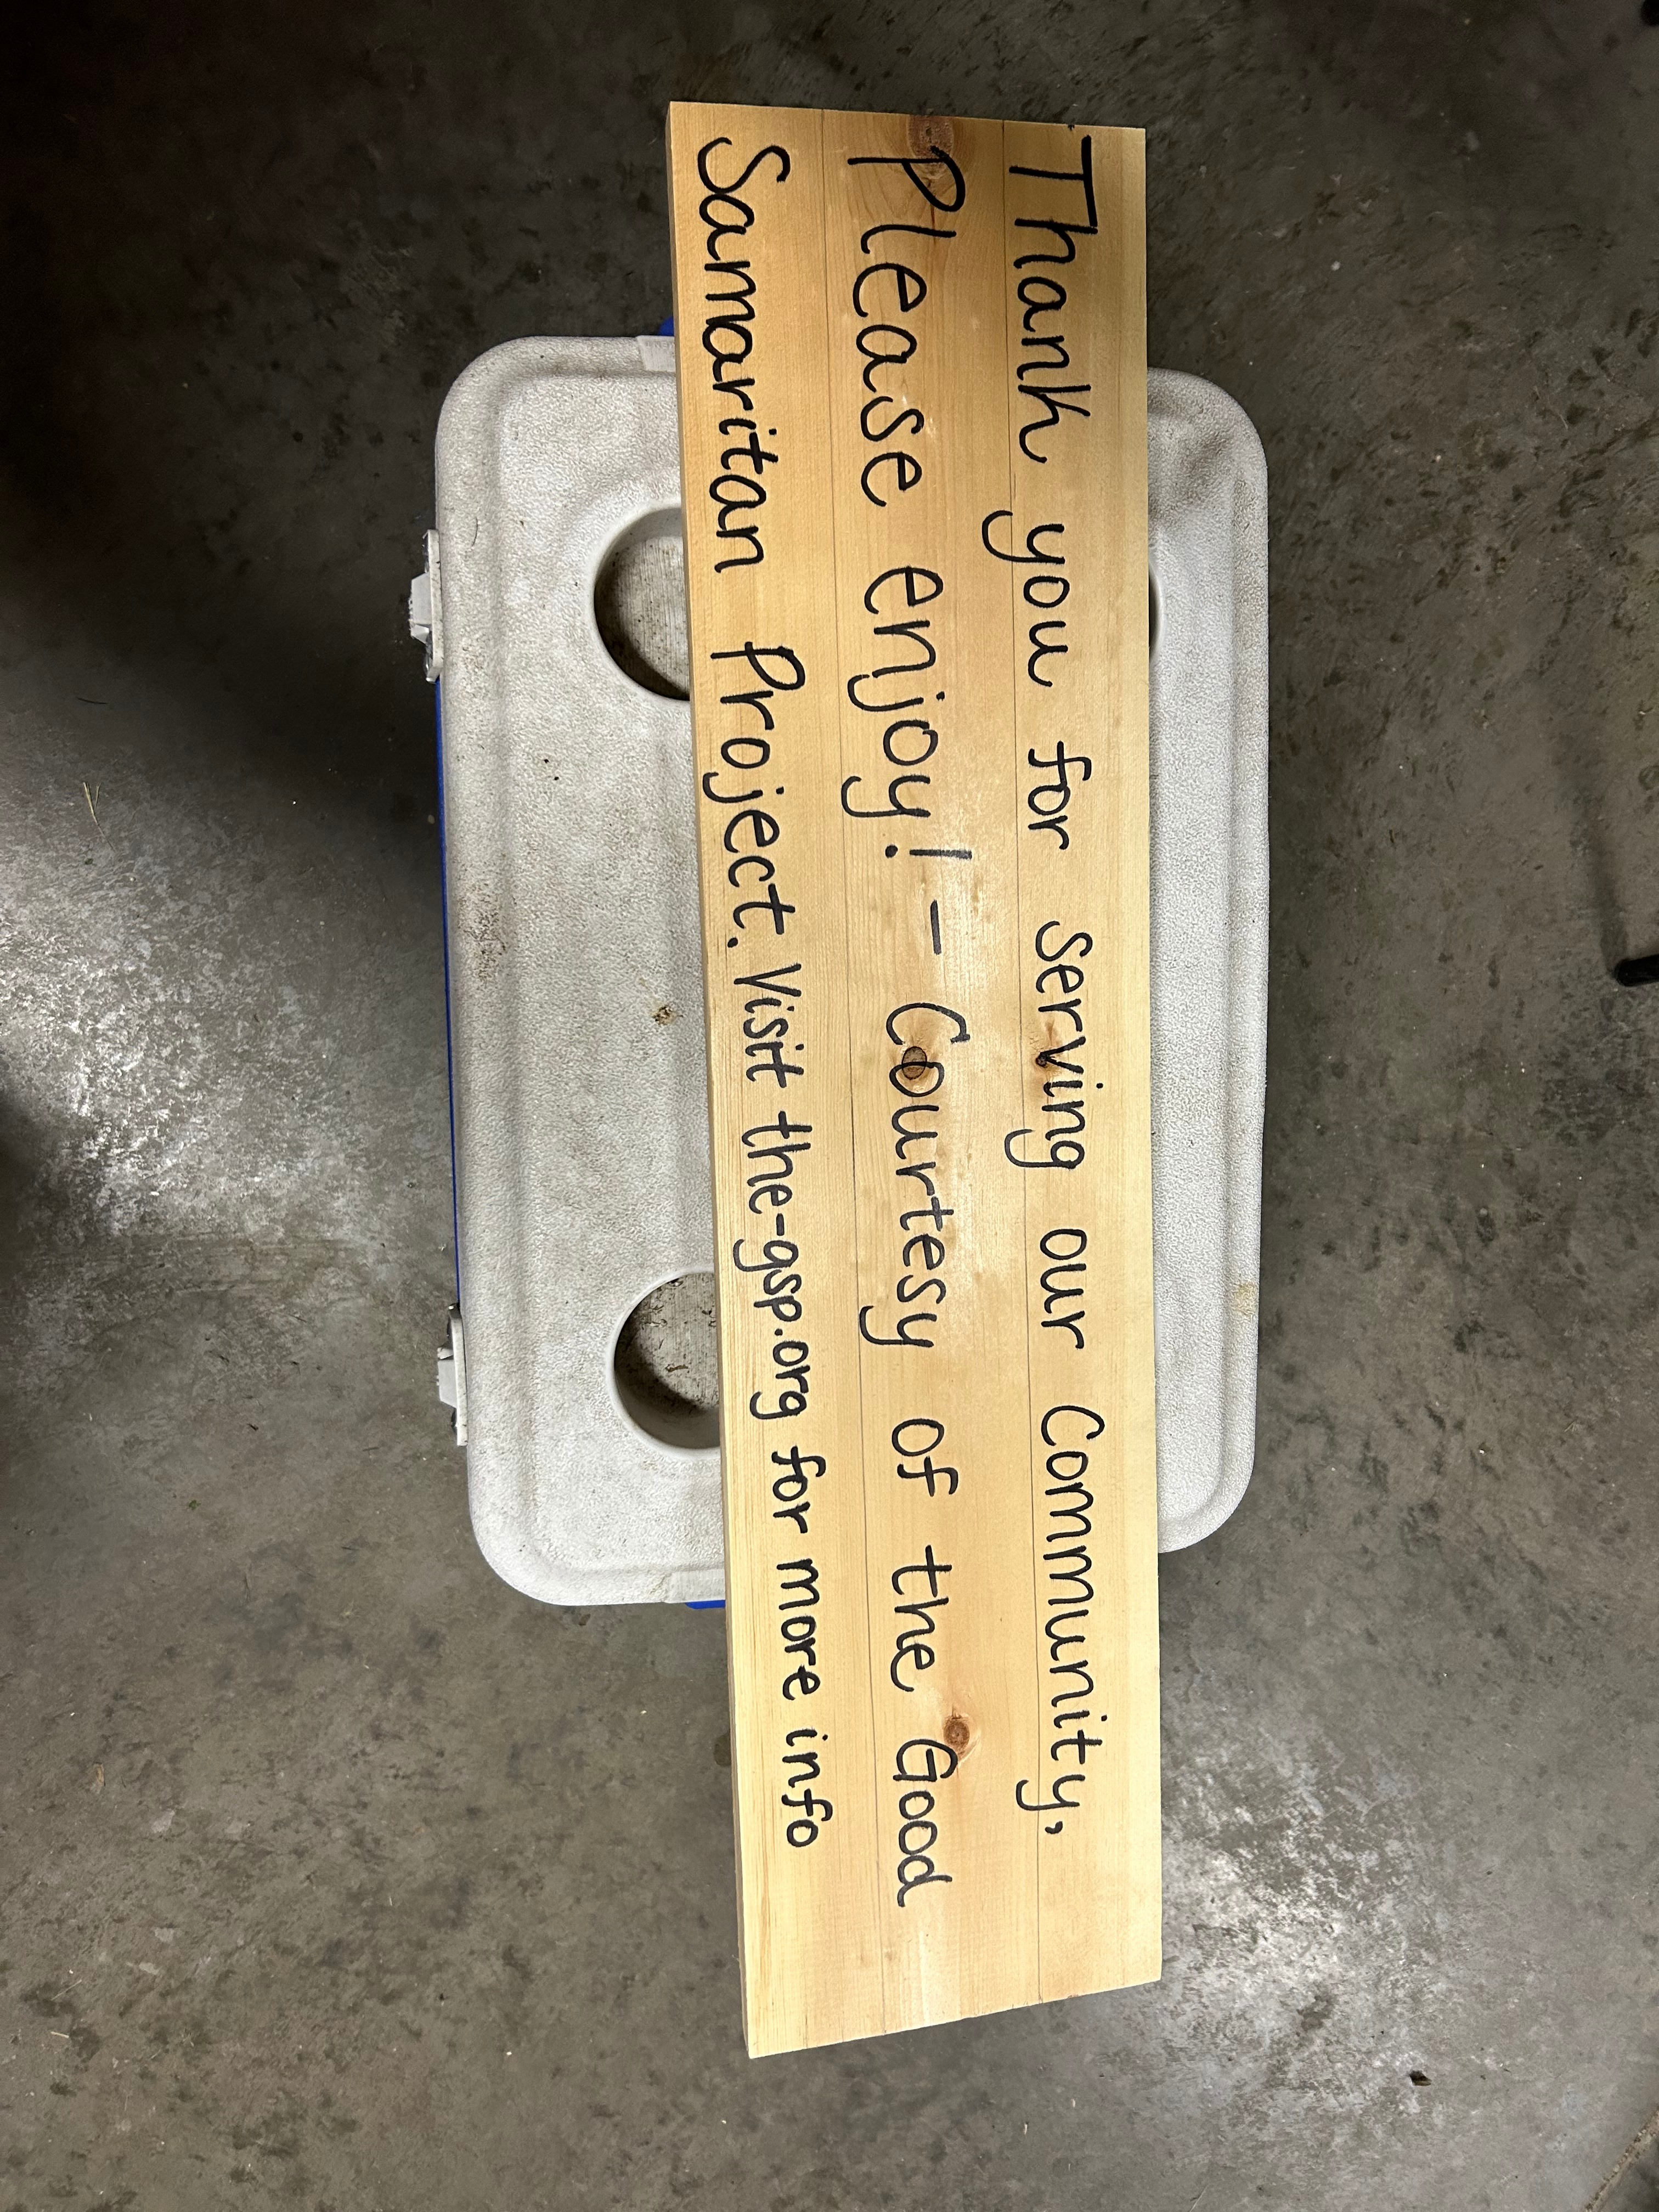 Thank you for serving our Community,
Please enjoy! - Courtesy of the Good
Samaritan Project. Visit the-gsp.org for more info